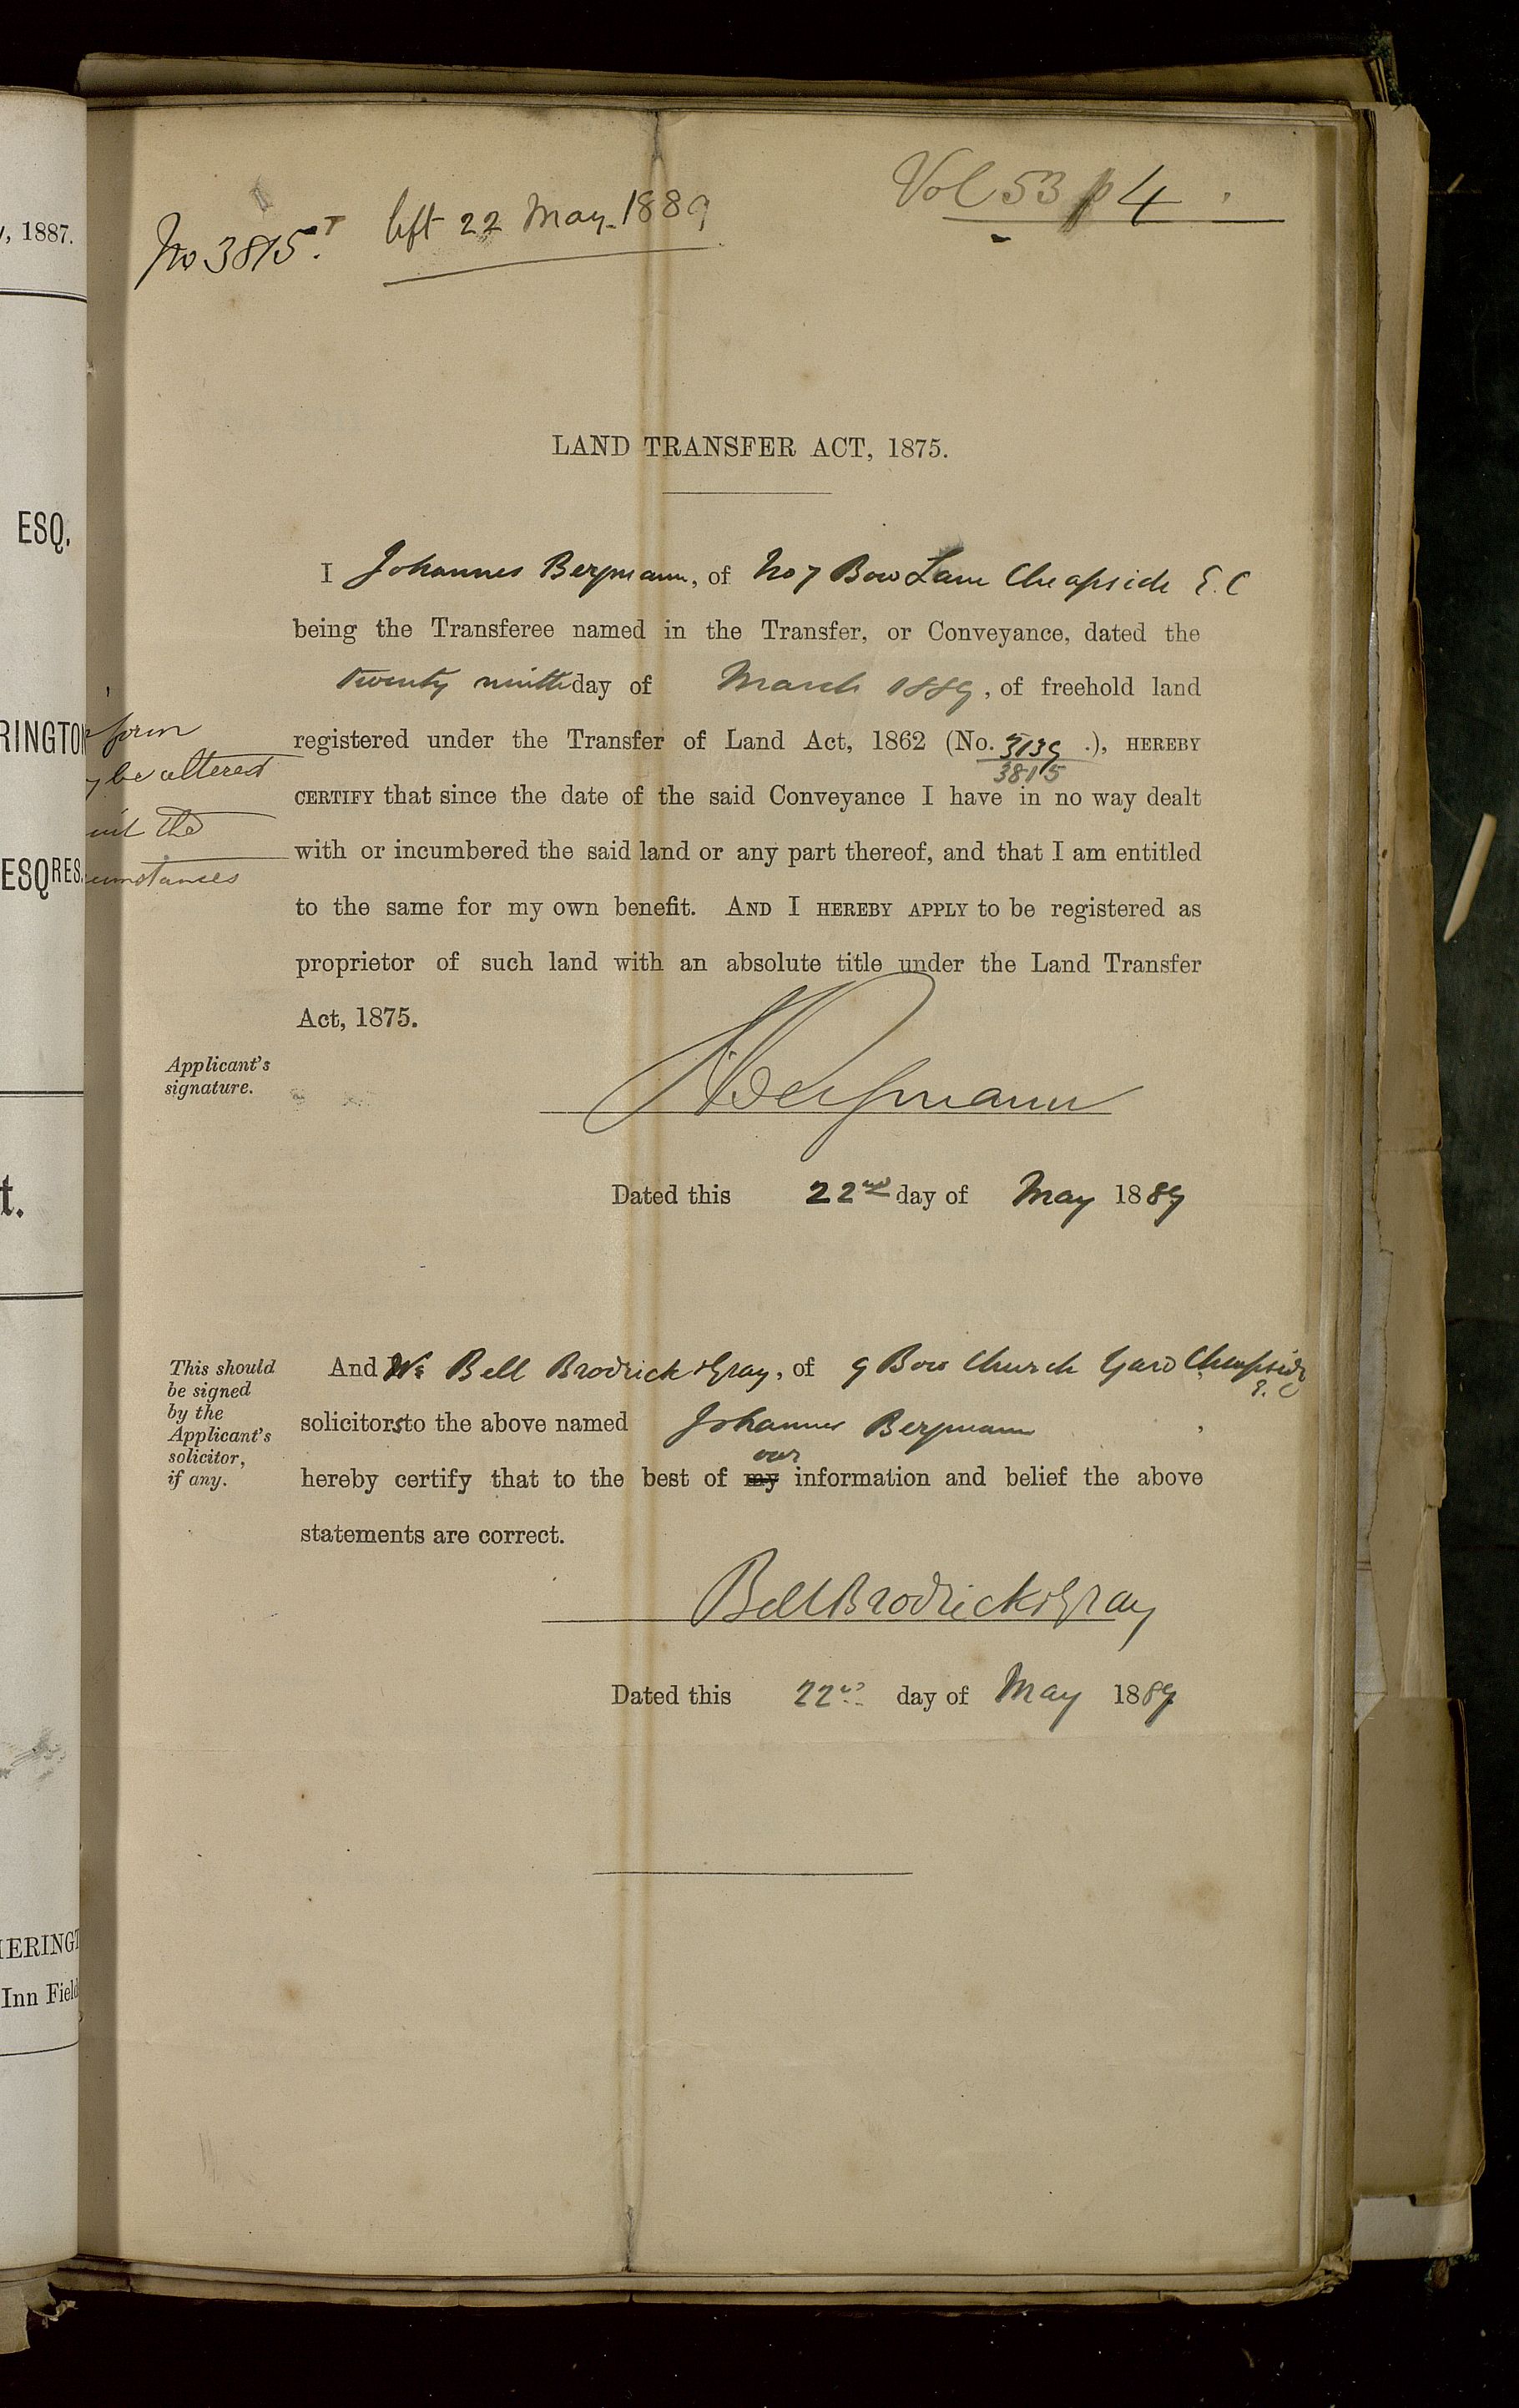 Vol 53 p 4
No 3815 T left 22 May 1889
, 1887.
ESQ,
RINGTON
ESQRES.
t.
HERINGT
Inn Field
LAND TRANSFER ACT, 1875.
I Johannes Bergmann, of No 7 Bow Lane Cheapside E.C
being the Transferee named in the Transfer, or Conveyance, dated the
twenty ninth day of March 1889, of freehold land
registered under the Transfer of Land Act, 1862 (No. 3139 .), HEREBY
3815
CERTIFY that since the date of the said Conveyance I have in no way dealt
with or incumbered the said land or any part thereof, and that I am entitled
to the same for my own benefit. AND I HEREBY APPLY to be registered as
proprietor of such land with an absolute title under the Land Transfer
Act, 1875.
form
be altered
the
cumstances
Applicant's
signature.
J Bergmann
Dated this 22nd day of May 1889
This should
be signed
by the
Applicant's
solicitor,
if any.
And We Bell Brodrick & Gray, of 9 Bow Church Yard Cheapside
E.C
solicitors to the above named Johannes Bergmann,
our
hereby certify that to the best of my information and belief the above
statements are correct.
Bell Brodrick & Gray
Dated this 22nd day of May 1889